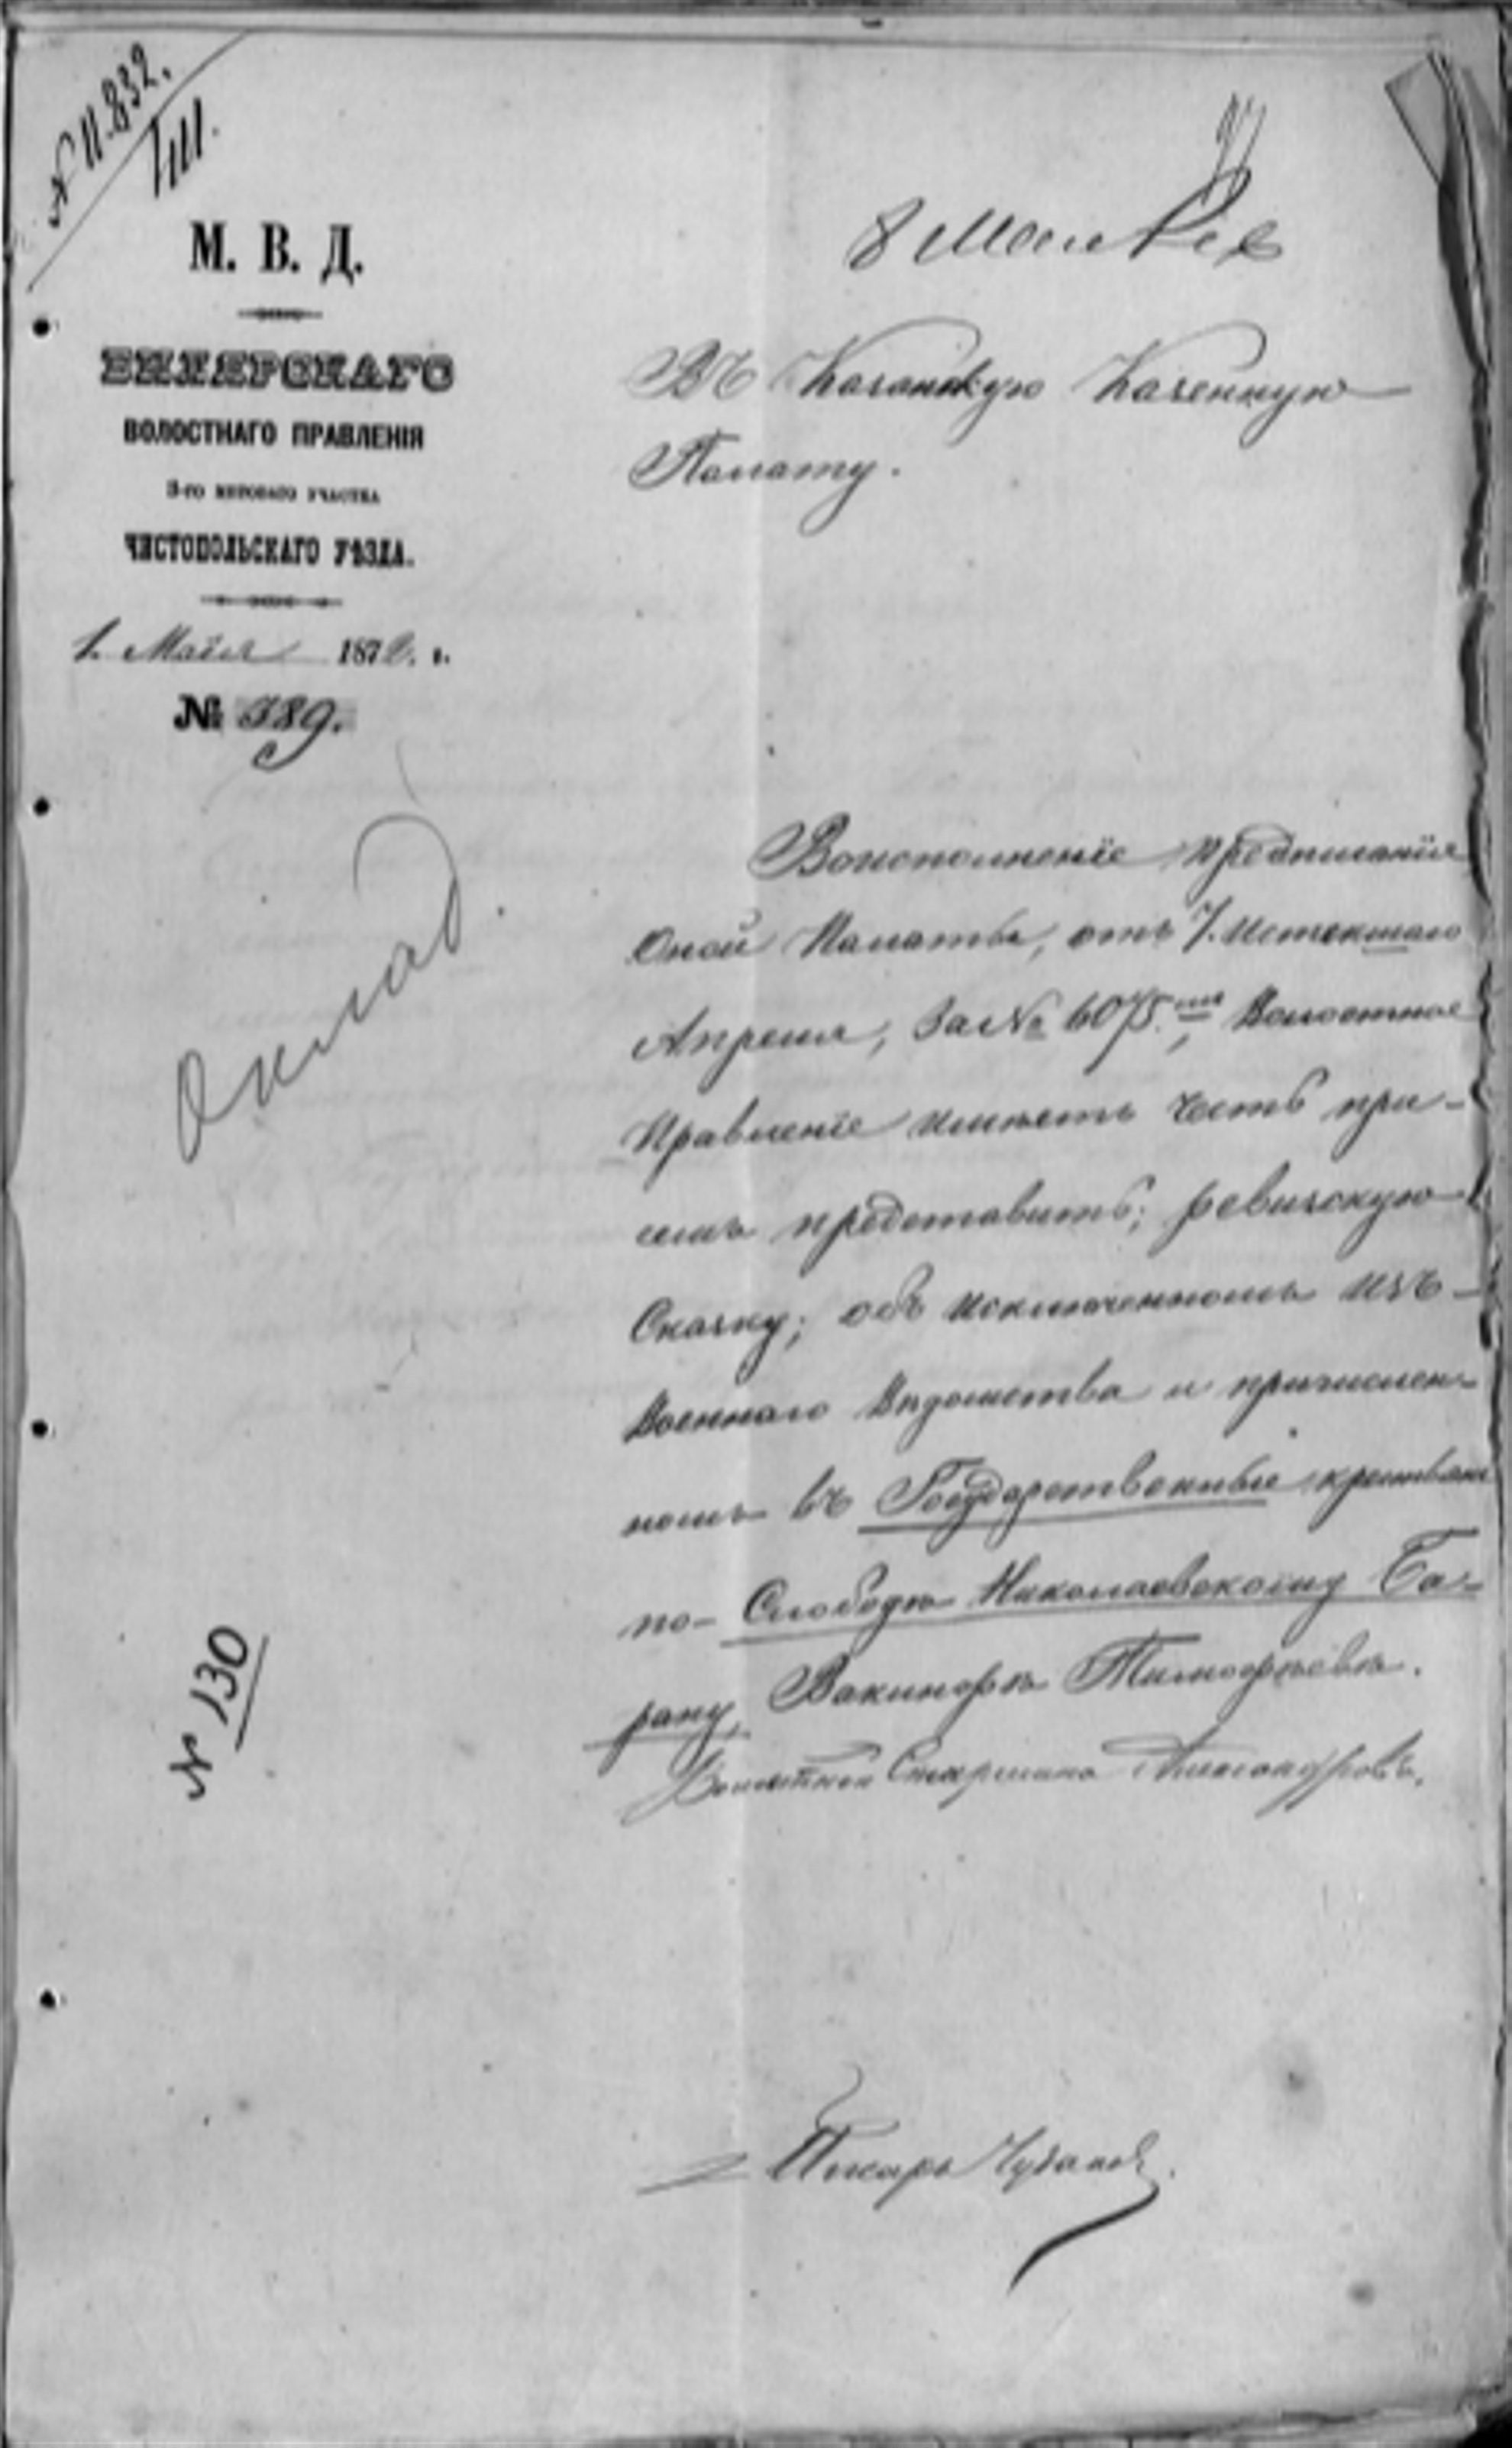 № 11.832.
М. В. Д.
БИЛЯРСКАГО
ВОЛОСТНАГО ПРАВЛЕНІЯ
3-го МИРОВАГО УЧАСТКА
ЧИСТОПОЛЬСКАГО УѢЗДА.
1. Маія 1872. г.
№ 389.
8 Мая
Въ Казанскую Казенную
Палату.
Воисполненіе предписанія
Оной Палаты, отъ 7. Истекшаго
Апреля, За № 6075.мъ, Волостное
Правленіе имѣетъ честь при-
семъ представить; ревизскую
Сказку; объ исключенномъ изъ
Военнаго Вѣдомства и причислен-
номъ въ Государственные крестьяне
по Слободѣ Николаевскому Ба-
рану, Вакинорѣ Тимофѣевѣ.
Волостной Старшина Александровъ.
Писарь
Оклад
№ 130